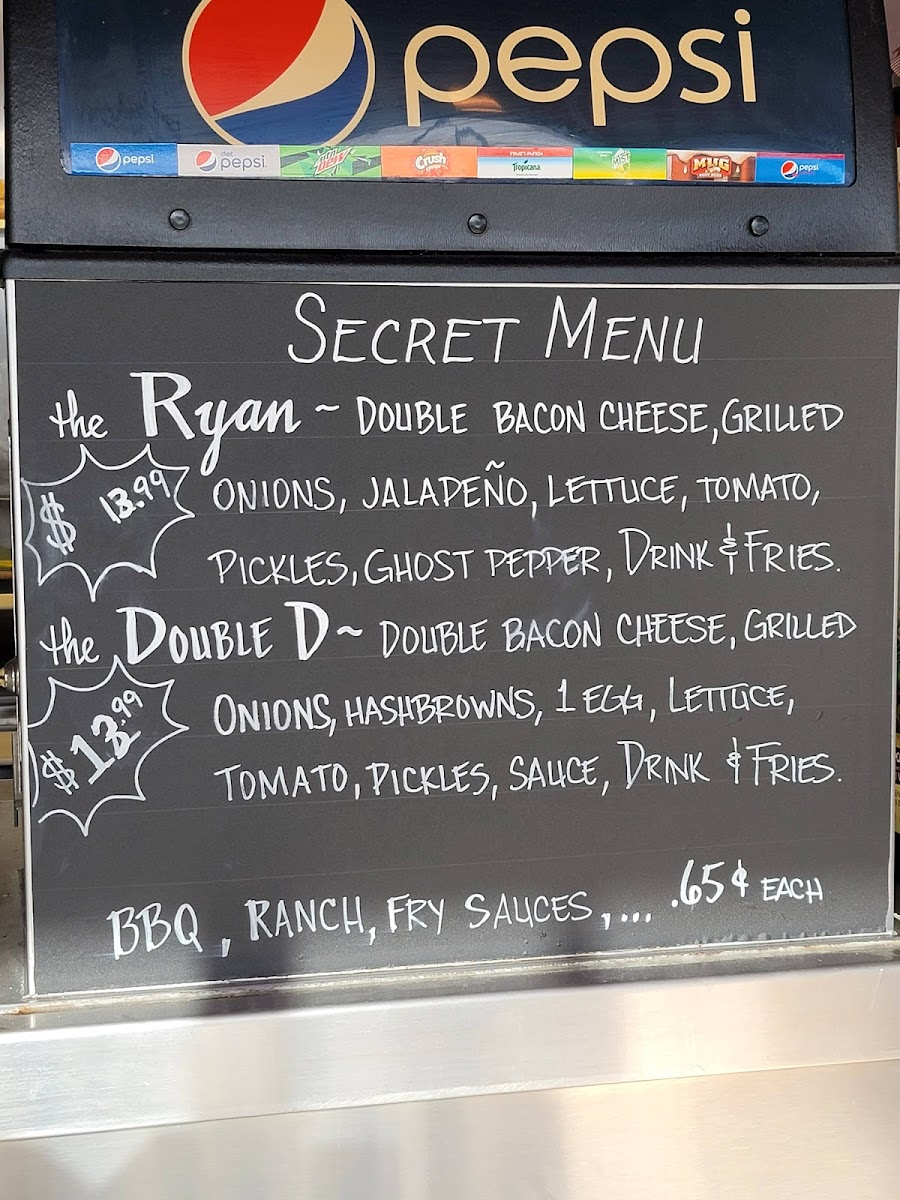 pepsi
pepsi diet pepsi mtn dew Crush FRUIT PUNCH Tropicana MIST MUG ROOT BEER pepsi
SECRET MENU
the Ryan ~ DOUBLE BACON CHEESE, GRILLED
$ 13.99 ONIONS, JALAPEÑO, LETTUCE, TOMATO,
PICKLES, GHOST PEPPER, DRINK & FRIES.
the DOUBLE D ~ DOUBLE BACON CHEESE, GRILLED
$ 13.99 ONIONS, HASHBROWNS, 1 EGG, LETTUCE,
TOMATO, PICKLES, SAUCE, DRNK & FRIES.
BBQ, RANCH, FRY SAUCES, ... .65¢ EACH